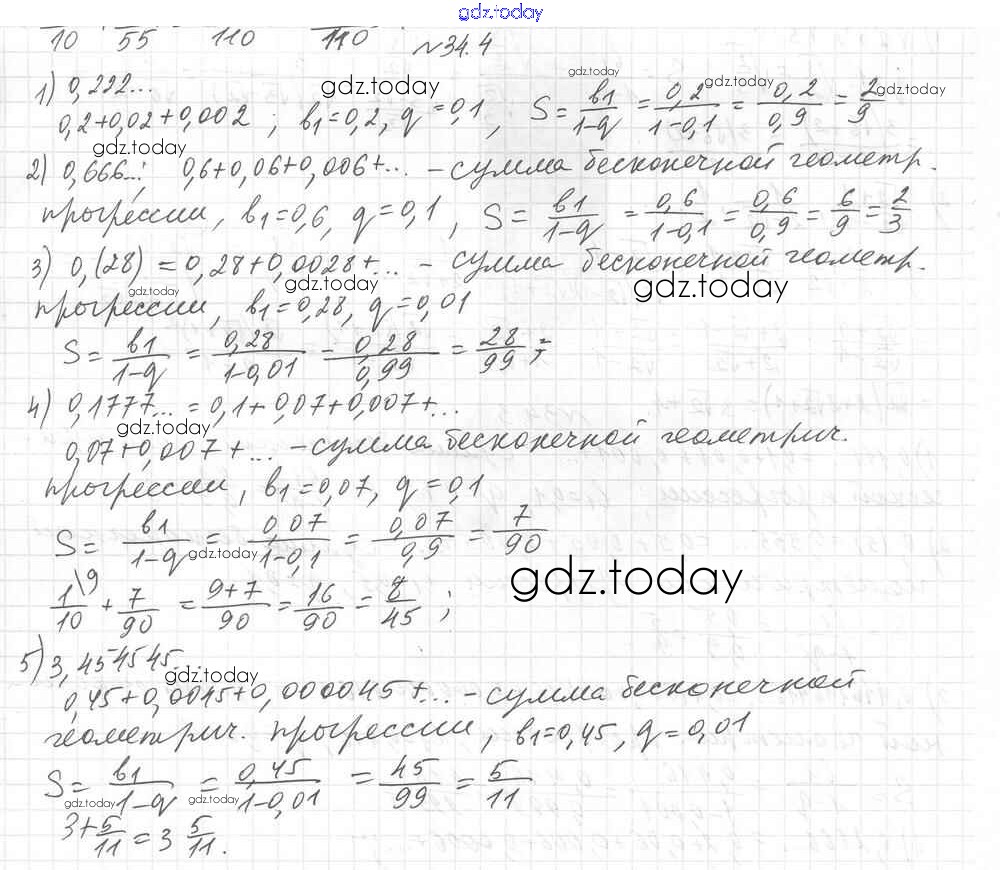 gdz.today
10 55 110 110 №34.4
1) 0,222...
gdz.today
gdz.today
gdz.today
0,2+0,02+0,002 ; b1=0,2, q=0,1, S= b1/1-q = 0,2/1-0,1 = 0,2/0,9 = 2/9
gdz.today
2) 0,666...; 0,6+0,06+0,006+... – сумма бесконечной геометр.
прогрессии, b1=0,6, q=0,1, S= b1/1-q = 0,6/1-0,1 = 0,6/0,9 = 6/9 = 2/3
3) 0,(28) = 0,28+0,0028+... – сумма бесконечной геометр.
gdz.today gdz.today gdz.today
прогрессии, b1=0,28, q=0,01
S= b1/1-q = 0,28/1-0,01 = 0,28/0,99 = 28/99 ;
4) 0,1777... = 0,1+0,07+0,007+...
gdz.today
0,07+0,007+... – сумма бесконечной геометрич.
прогрессии, b1=0,07, q=0,1
S= b1/1-q = 0,07/1-0,1 = 0,07/0,9 = 7/90
gdz.today gdz.today
gdz.today
1/10 \9 + 7/90 = 9+7/90 = 16/90 = 8/45 ;
5) 3,454545...
gdz.today
0,45+0,0045+0,000045+... – сумма бесконечной
геометрич. прогрессии, b1=0,45, q=0,01
S= b1/1-q = 0,45/1-0,01 = 45/99 = 5/11
gdz.today gdz.today
3+5/11 = 3 5/11.